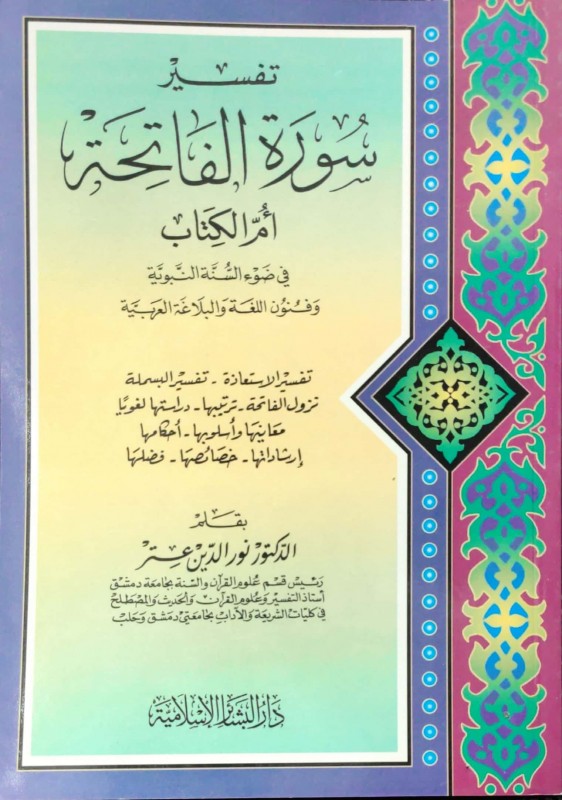 تفسير
سُورَة الفَاتِحَة
أُمّ الكِتَاب
في ضَوْء السُّنَّة النَّبويَّة
وَفنُون اللغَة وَالبلَاغَة العَربيَّة
تفسير الاستعاذة - تفسير البسملة
نزول الفاتحة - ترتيبها - دراستها لغويًا
معَانيها وأسلوبها - أحكامها
إرشاداتها - خصَائصها - فضلها
بقلم
الدكتور نور الدّين عتر
رئيس قسم علوم القرآن والسنة بجامعة دمشق
أستاذ التفسير وعلوم القرآن والحديث والمصطلح
في كليات الشريعة والآداب بجامعتي دمشق وحلب
دَارُ البَشائر الإسْلاميَّة